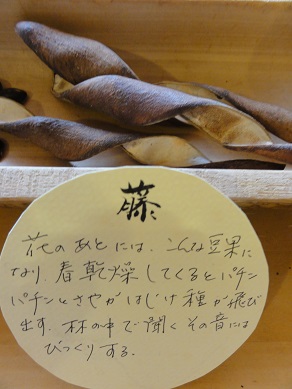 藤
花のあとには、こんな豆果に
なり、春乾燥してくるとパチン
パチンとさやがはじけ種が飛び
出す。林の中で聞くその音には
びっくりする。